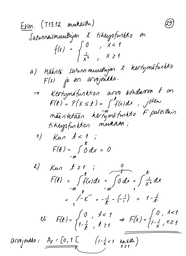 Esim. (T13.12 mukailtu) 29
Satunnaismuuttujan X tiheysfunktio on
f(x) = { 0 , x < 1
1/x² , x ≥ 1
a) Määritä satunnaismuuttujan X kertymäfunktio
F(x) ja sen arvojoukko.
→ Kertymäfunktion arvo kohdassa t on
F(t) = P(X ≤ t) = ∫ f(x)dx , joten
määritetään kertymäfunktio F
tiheysfunktion mukaan:
1) Kun t < 1 :
F(t) = ∫ 0 dx = 0
2) Kun t ≥ 1 :
F(t) = ∫ f(x)dx = ∫ 0dx + ∫ 1/x² dx
= 1 - 1/t
eli F(t) = { 0 , t < 1
1 - 1/t , t ≥ 1
⇒ F(x) = { 0 , x < 1
1 - 1/x , x ≥ 1
arvojoukko: = [0, 1[